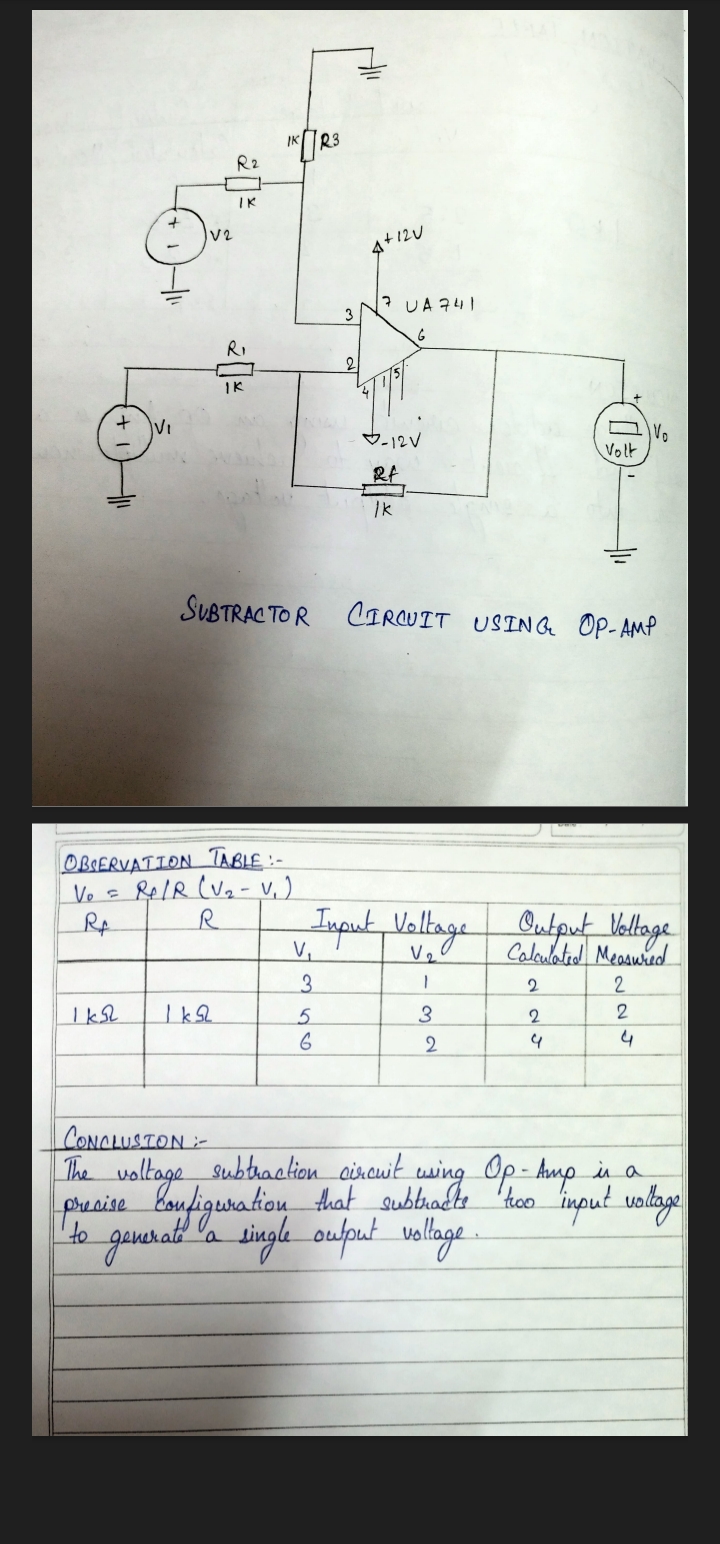 1K R3
R2
1K
+
-
V2
+12V
7 UA741
3
6
R1
2
1K
4 1 5
+
-
V1
-12V
+
Volt
-
V0
Rf
1K
SUBTRACTOR CIRCUIT USING OP-AMP
OBSERVATION TABLE:-
V0 = Rf/R (V2 - V1)
Rf R Input Voltage Output Voltage
V1 V2 Calculated Measured
3 1 2 2
1kΩ 1kΩ 5 3 2 2
6 2 4 4
CONCLUSION :-
The voltage subtraction circuit using Op-Amp is a
precise configuration that subtracts two input voltage
to generate a single output voltage.